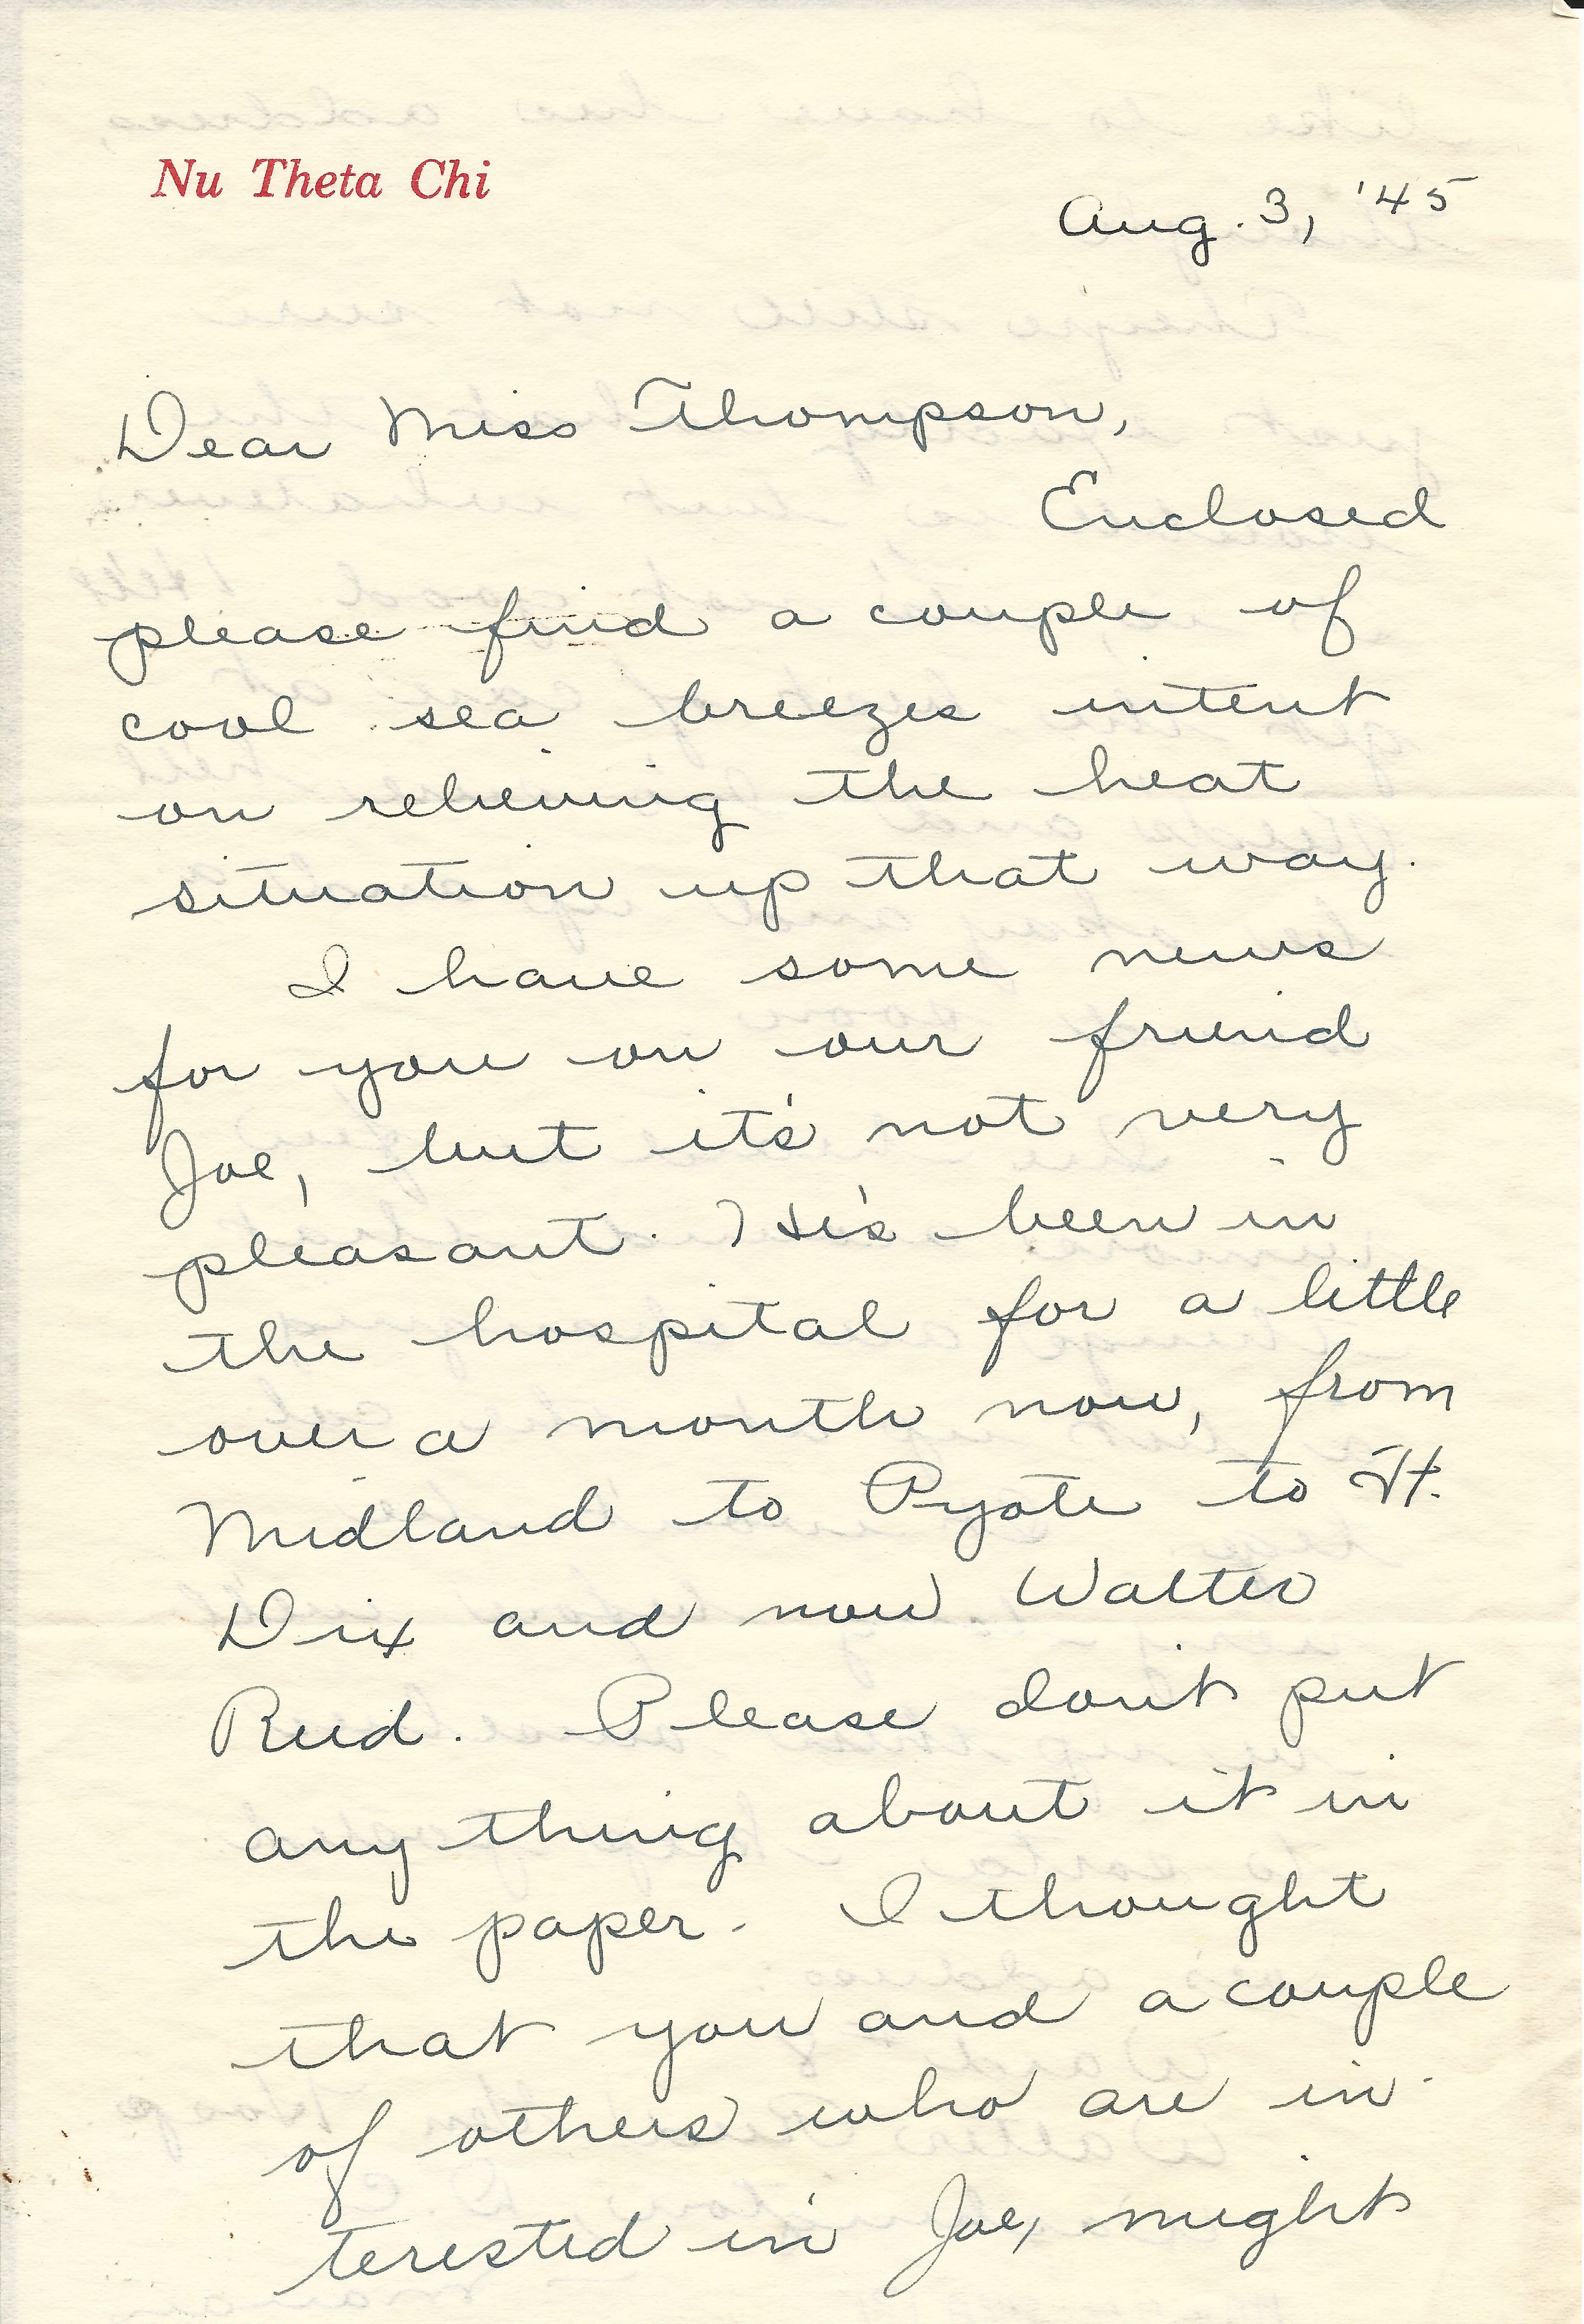 Nu Theta Chi
Aug. 3, '45
Dear Miss Thompson,
Enclosed
please find a couple of
cool sea breezes intent
on relieving the heat
situation up that way.
I have some news
for you on our friend
Joe, but it's not very
pleasant. He's been in
the hospital for a little
over a month now, from
Midland to Pyote to Ft.
Dix and now Walter
Reed. Please don't put
any thing about it in
the paper. I thought
that you and a couple
of others who are in-
terested in Joe, might